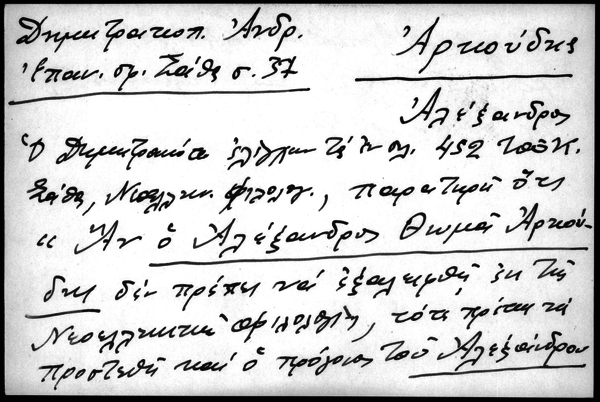 Δημητρακοπ. Ἀνδρ. Ἀρκούδης
Ἐπαν. σφ. Σάθα σ. 37
Ἀλέξανδρος
Ὁ Δημητρακόπ. ἐλέγχων τὰ ἐν σελ. 452 τοῦ Κ.
Σάθα, Νεοελλην. φιλολογ., παρατηρεῖ ὅτι
"Ἂν ὁ Ἀλέξανδρος Θωμᾶ Ἀρκού-
δης δὲν πρέπει νὰ ἐξαλειφθῇ ἐκ τῆς
Νεοελληνικῆς φιλολογίας, τότε πρέπει νὰ
προστεθῇ καὶ ὁ πρόγονος τοῦ Ἀλεξάνδρου